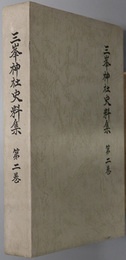 三峯神社史料集 第二巻
三峯神社史料集 第二巻